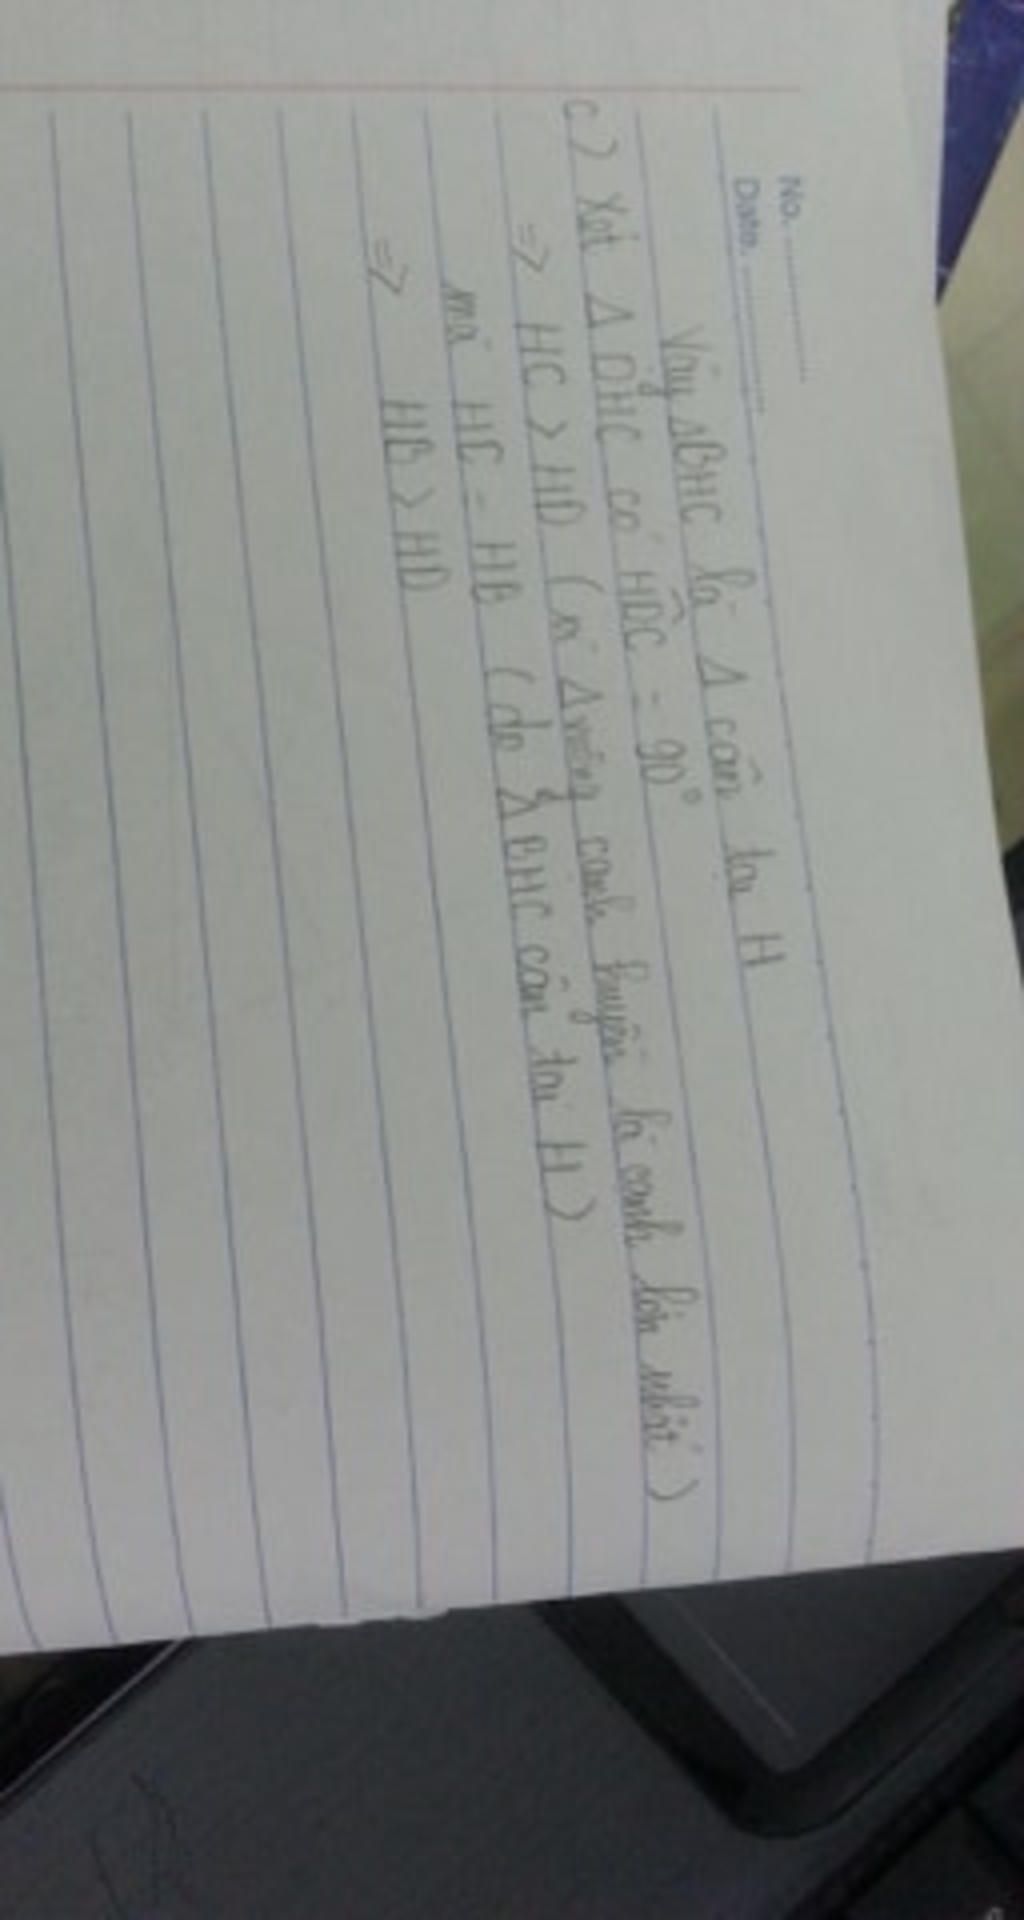 No. ............
Date. ............
Vậy ΔBHC là Δ cân tại H
c) Xét Δ DHC có HDC = 90°
=> HC > HD ( Δ vuông cạnh huyền là cạnh lớn nhất )
mà HC = HB (do ΔBHC cân tại H)
=> HB > HD